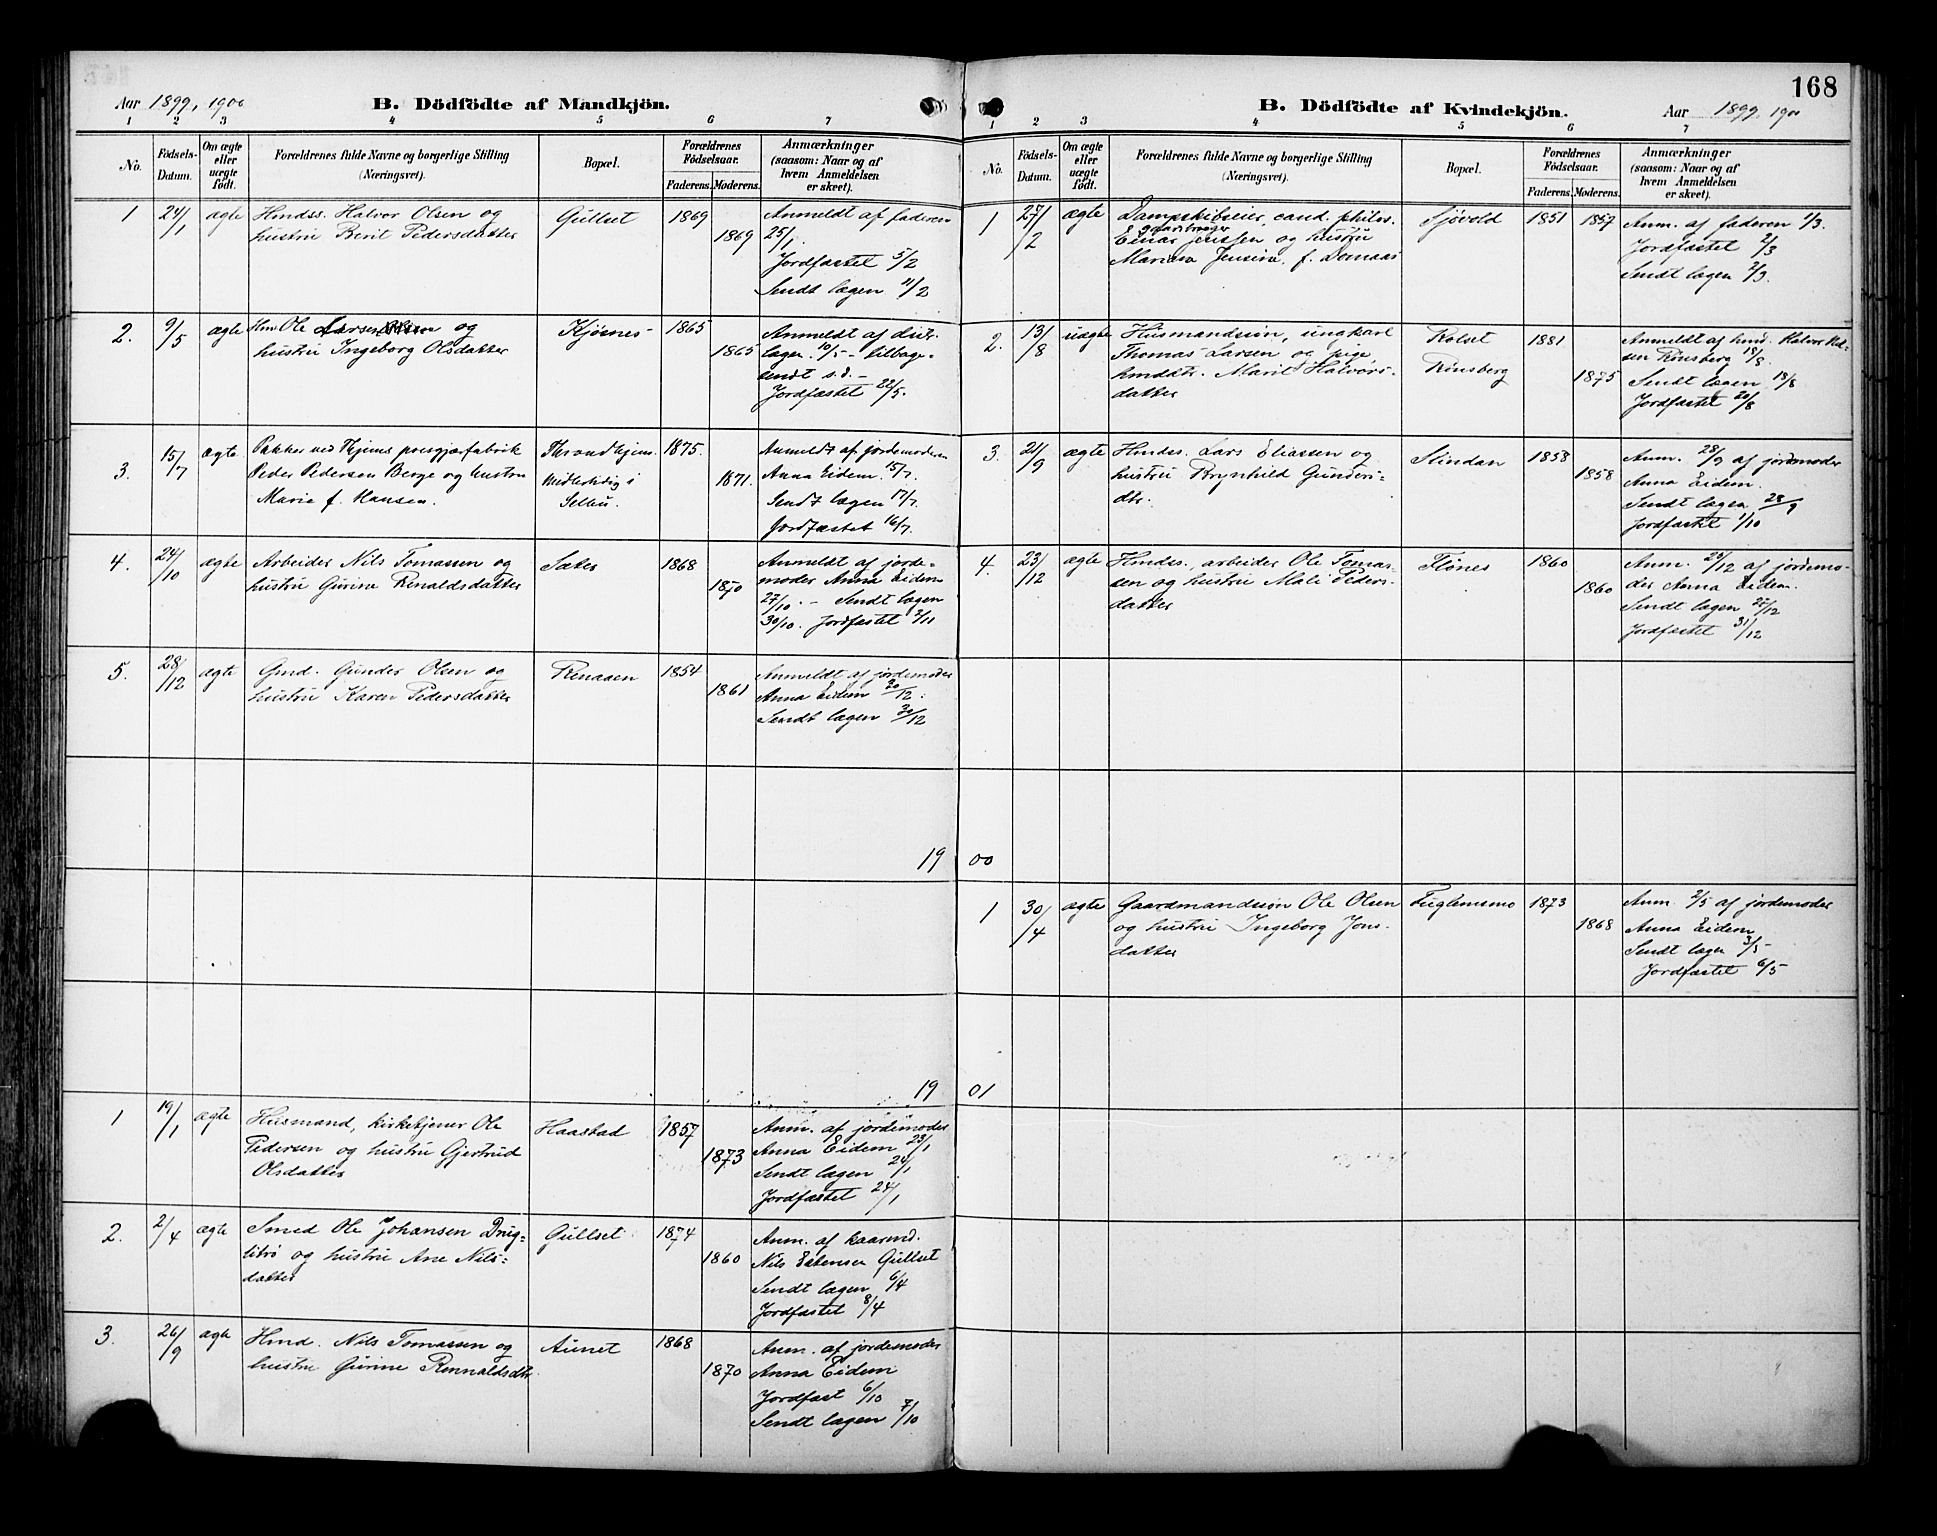 Aar 1899, 1900
B. Dödfödte af Mandkjön.
1 2 3 4 5 6 7
No.
Födsels-
Datum.
Om ægte
eller
uægte
födt.
Forældrenes fulde Navne og borgerlige Stilling
(Næringsvei).
Bopæl.
Forældrenes
Födselsaar.
Faderens. Moderens.
Anmærkninger
(saasom: Naar og af
hvem Anmeldelsen
er skeet).
1 24/1 ægte Hmdss. Halvor Olsen og
hustru Berit Pedersdatter
Gullset 1869 1869
Anmeldt af faderen
25/1.
Jordfæstet 5/2
Sendt lægen 11/2
2. 9/5 ægte Hm. Ole Larsen og
hustru Ingeborg Olsdatter
Kjøsnes 1865 1865
Anmeldt af distr.
lægen 10/5 - tilbage-
sendt s.d. -
Jordfæstet 22/5.
3. 15/7 ægte Pakker ved Thjems presgjærfabrik
Peder Pedersen Berge og hustru
Marie f. Hansen.
Throndhjem.
midlertidig i
Selbu.
1875. 1871.
Anmeldt af jordemoderen
Anna Eidem 15/7.
Sendt lægen 17/7.
Jordfæstet 16/7.
4. 24/10 ægte Arbeider Nils Tomassen og
hustru Gurine Renaldsdatter
Sæter 1868 1870
Anmeldt af jorde-
moder Anna Eidem
27/10. - Sendt lægen
30/10. Jordfæstet 2/11
5. 28/12 ægte Gmd. Gunder Olsen og
hustru Karen Pedersdatter
Renaaen 1854 1861
Anmeldt af jordemoder
Anna Eidem 30/12.
Sendt lægen 30/12
1 19/1 ægte Husmand, kirketjener Ole
Pedersen og hustru Gjertrud
Olsdatter
Haastad 1857 1873
Anm. af jordemoder
Anna Eidem 23/1
Sendt lægen 24/1
Jordfæstet 24/1
2. 2/4 ægte Smed Ole Johansen Drug-
libø og hustru Ane Nils-
datter
Gullset 1874 1860
Anm. af kaarmd.
Nils Estensen Gullset
Sendt lægen 6/4
Jordfæstet 8/4
3. 26/9 ægte Hmd. Nils Tomassen og
hustru Gurine Rennaldsdtr.
Aunet 1868 1870
Anm. af jordemoder
Anna Eidem
Jordfæst 6/10
Sendt lægen 7/10
168
B. Dödfödte af Kvindekjön.
Aar 1899. 1900
1 2 3 4 5 6 7
No.
Födsels-
Datum.
Om ægte
eller
uægte
födt.
Forældrenes fulde Navne og borgerlige Stilling
(Næringsvei).
Bopæl.
Forældrenes
Födselsaar.
Faderens. Moderens.
Anmærkninger
(saasom: Naar og af
hvem Anmeldelsen
er skeet).
1 27/2 ægte Dampskibseier, cand. philos.
gaardbruger
Einar Jenssen og hustru
Mariane Jensine, f. Domaas
Sjøvold 1851 1857
Anm. af faderen 1/3.
Jordfæstet 2/3
Sendt lægen 2/3.
2. 13/8 uægte Husmandssøn, ungkarl
Thomas Larsen og pige,
hmddtr. Marit Halvors-
datter
Rolset
Rinsberg
1881 1875
Anmeldt af hmd. Halvor Ol-
sen Rinsberg 18/8.
Sendt lægen 18/8
Jordfæstet 20/8
3. 21/9 ægte Hmdss. Lars Eliassen og
hustru Brynhild Gunders-
dtr.
Slindan 1858 1858
Anm. 28/9 af jordemoder
Anna Eidem.
Sendt lægen 28/9
Jordfæstet 1/10
4. 23/12 ægte Hmdss., arbeider Ole Tomas-
sen og hustru Mali Peders-
datter
Flønes 1860 1860
Anm. 25/12 af jordemo-
der Anna Eidem.
Sendt lægen 27/12
Jordfæstet 31/12
1900
1 30/4 ægte Gaardmandssøn Ole Olsen
og hustru Ingeborg Jons-
datter
Fuglemsmo 1873 1868
Anm. 2/5 af jordemoder
Anna Eidem
Sendt lægen 3/5
Jordfæstet 6/5
1901